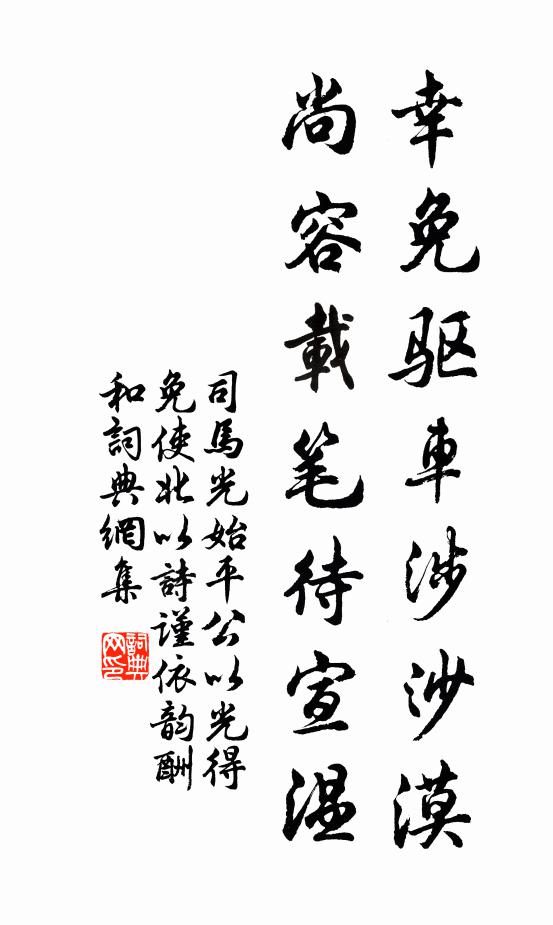 幸免驱車涉沙漠
尚容載笔待宣温
司馬光始平公以光得
免使北以詩谨依韵酬
和詞典網集
詞典网印